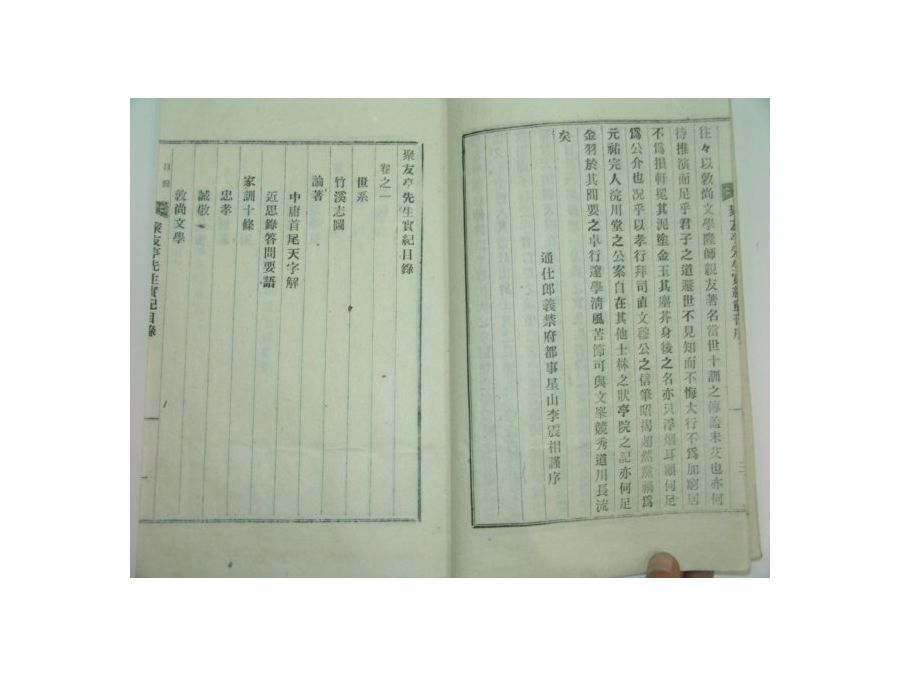 往々以敦尚文學隆師親友著名當世十訓之傳蓋未艾也亦何
待推演而足乎君子之道遯世不見知而不悔大行不爲加窮居
不爲損軒冕其泥塗金玉其塵芥身後之名亦只浮烟耳顧何足
爲公介也况乎以孝行拜司直文穆公之信筆昭揭超然黨禍爲
元祐完人浣川堂之公案自在其他士林之狀亭院之記亦何足
金羽於其間要之卓行邃學淸風苦節可與文峯競秀道川長流
矣
通仕郞義禁府都事星山李震相謹序
聚友亭先生實紀目錄
卷之一
世系
竹溪志圖
論著
中庸首尾天字解
近思錄答問要語
家訓十條
忠孝
誠敬
敦尚文學
目錄
聚友亭先生實紀目錄